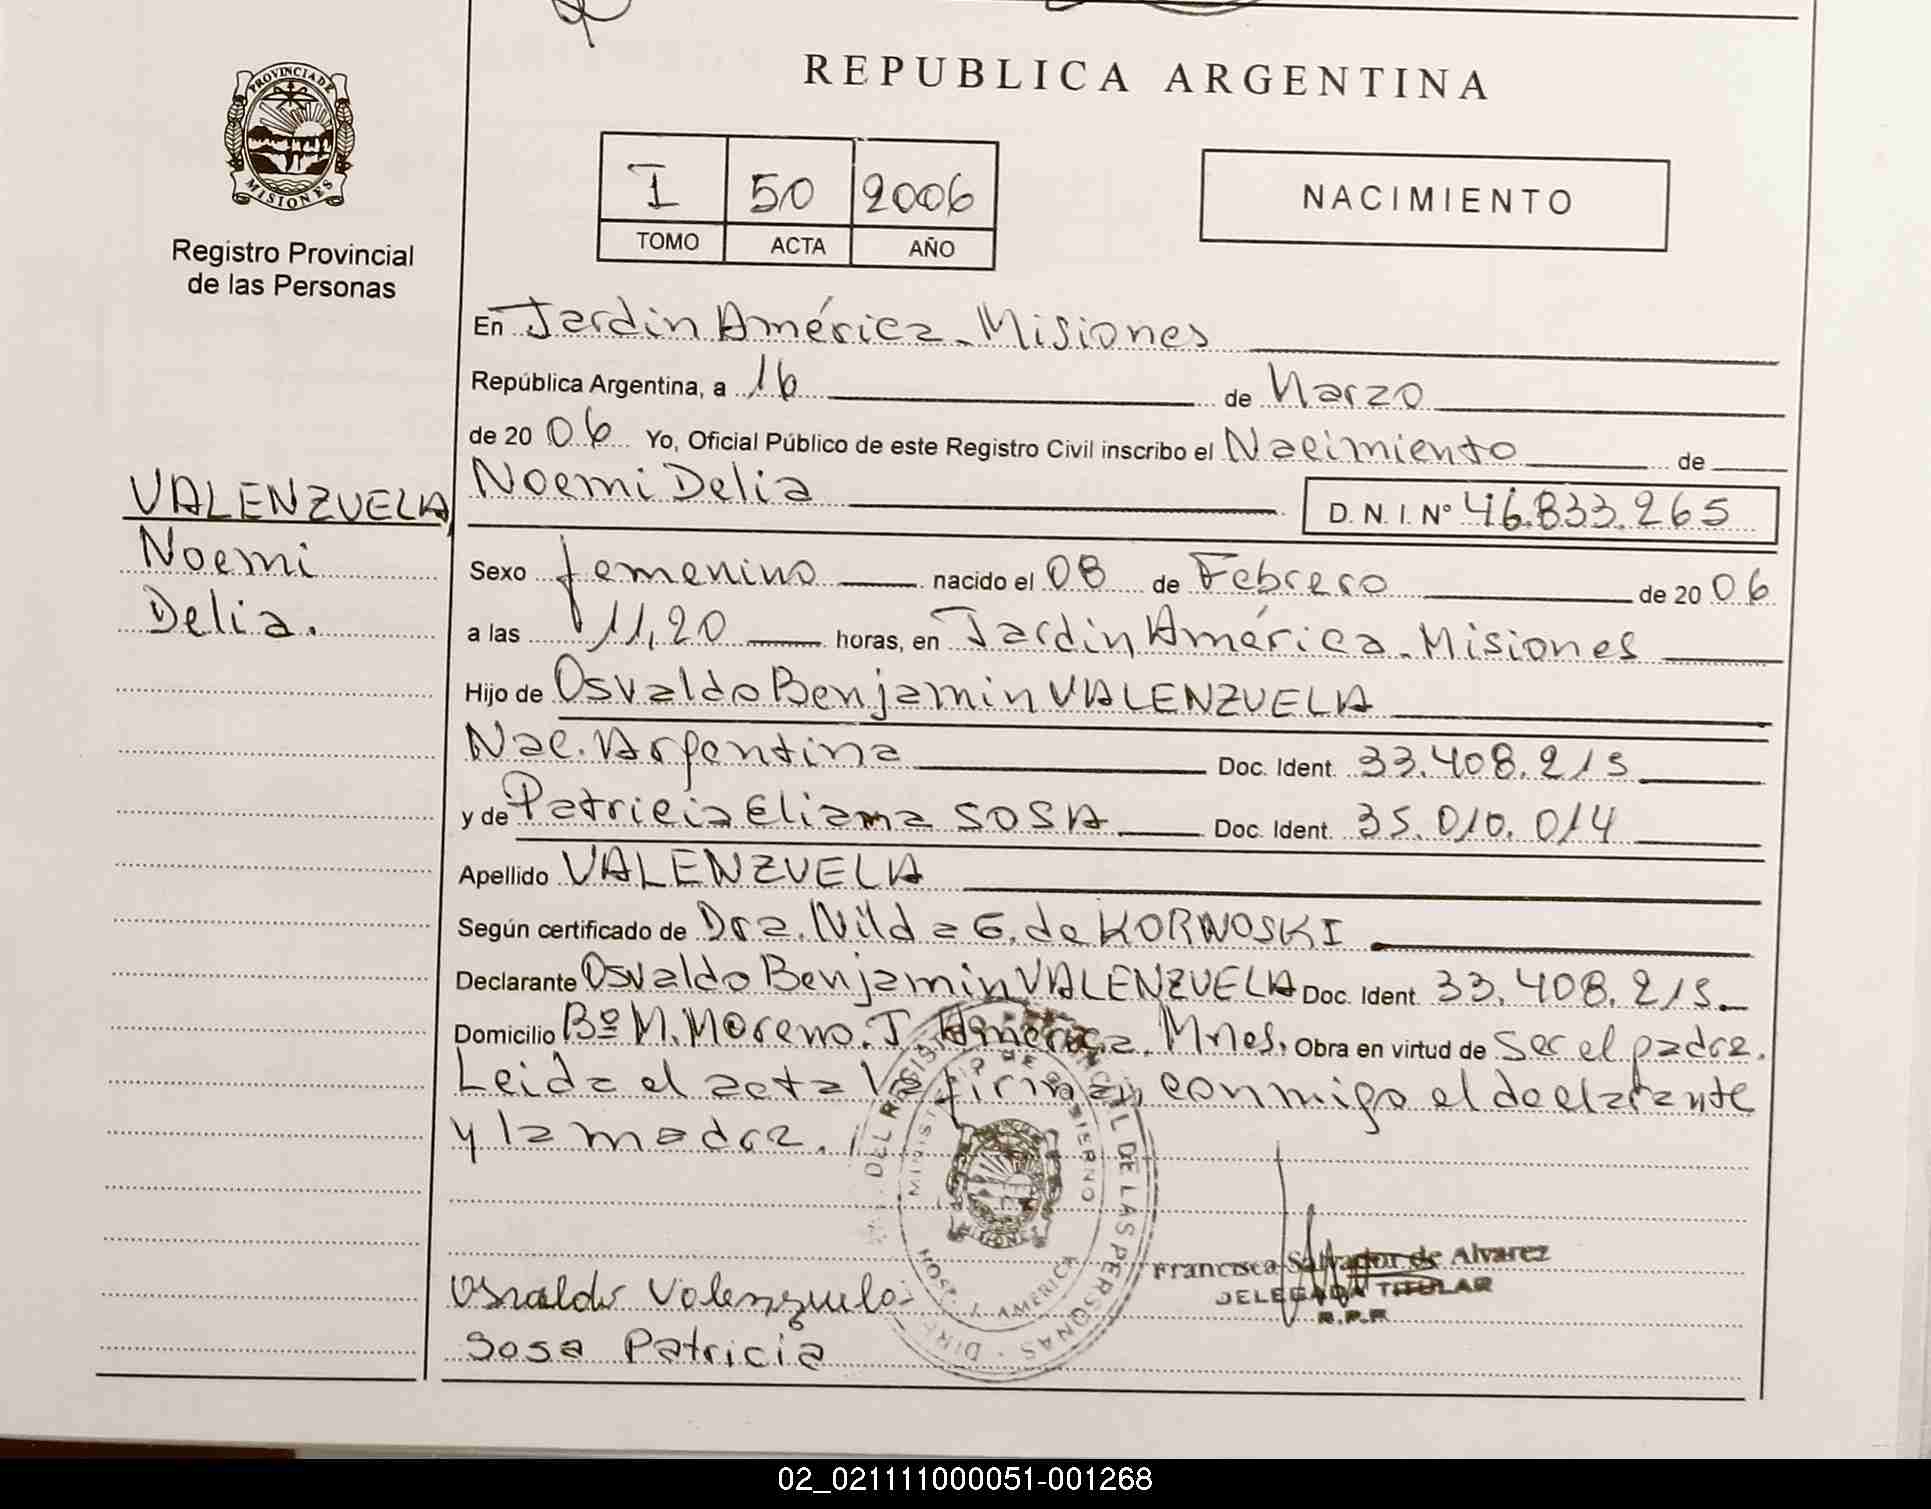 REPUBLICA ARGENTINA
PROVINCIA DE
MISIONES
Registro Provincial
de las Personas
I 50 2006
TOMO ACTA AÑO
NACIMIENTO
VALENZUELA
Noemi
Delia.
En Jardin América - Misiones
República Argentina, a 16 de Marzo
de 20 06 Yo, Oficial Público de este Registro Civil inscribo el Nacimiento de
Noemi Delia D. N. I. Nº 46.833.265
Sexo femenino nacido el 08 de Febrero de 20 06
a las 11,20 horas, en Jardin América - Misiones
Hijo de Osvaldo Benjamin VALENZUELA
Nac. Argentina Doc. Ident. 33.408.215
y de Patricia Eliama SOSA Doc. Ident. 35.010.014
Apellido VALENZUELA
Según certificado de Dra. Nilda G. de KORNOSKI
Declarante Osvaldo Benjamin VALENZUELA Doc. Ident. 33.408.215
Domicilio Bº M. Moreno. J. América. Mnes. Obra en virtud de ser el padre.
Leida el acta la firman conmigo el declarante
y la madre.
DEL REGISTRO PROVINCIAL DE LAS PERSONAS
MINISTERIO DE GOBIERNO
HOSP. J. AMERICA
MISIONES
Francisca Salvador de Alvarez
DELEGADA TITULAR
R.P.P.
Osvaldo Valenzuela
Sosa Patricia
02_021111000051-001268